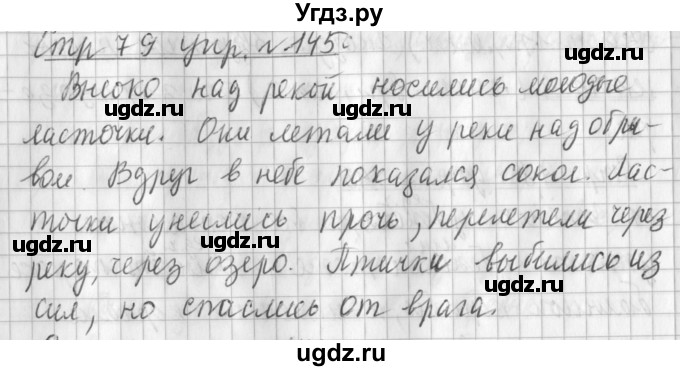 Угдз.ру
Стр 79 упр. №145:
Высоко над рекой носились молодые
ugdz.ru ugdz.ru
ласточки. Они летали у реки над обры-
вом. Вдруг в небе показался сокол. Лас-
ugdz.ru
точки унеслись прочь, перелетели через
ugdz.ru ugdz.ru
реку, через озеро. Птички выбились из
ugdz.ru
сил, но спаслись от врага.
ugdz.ru